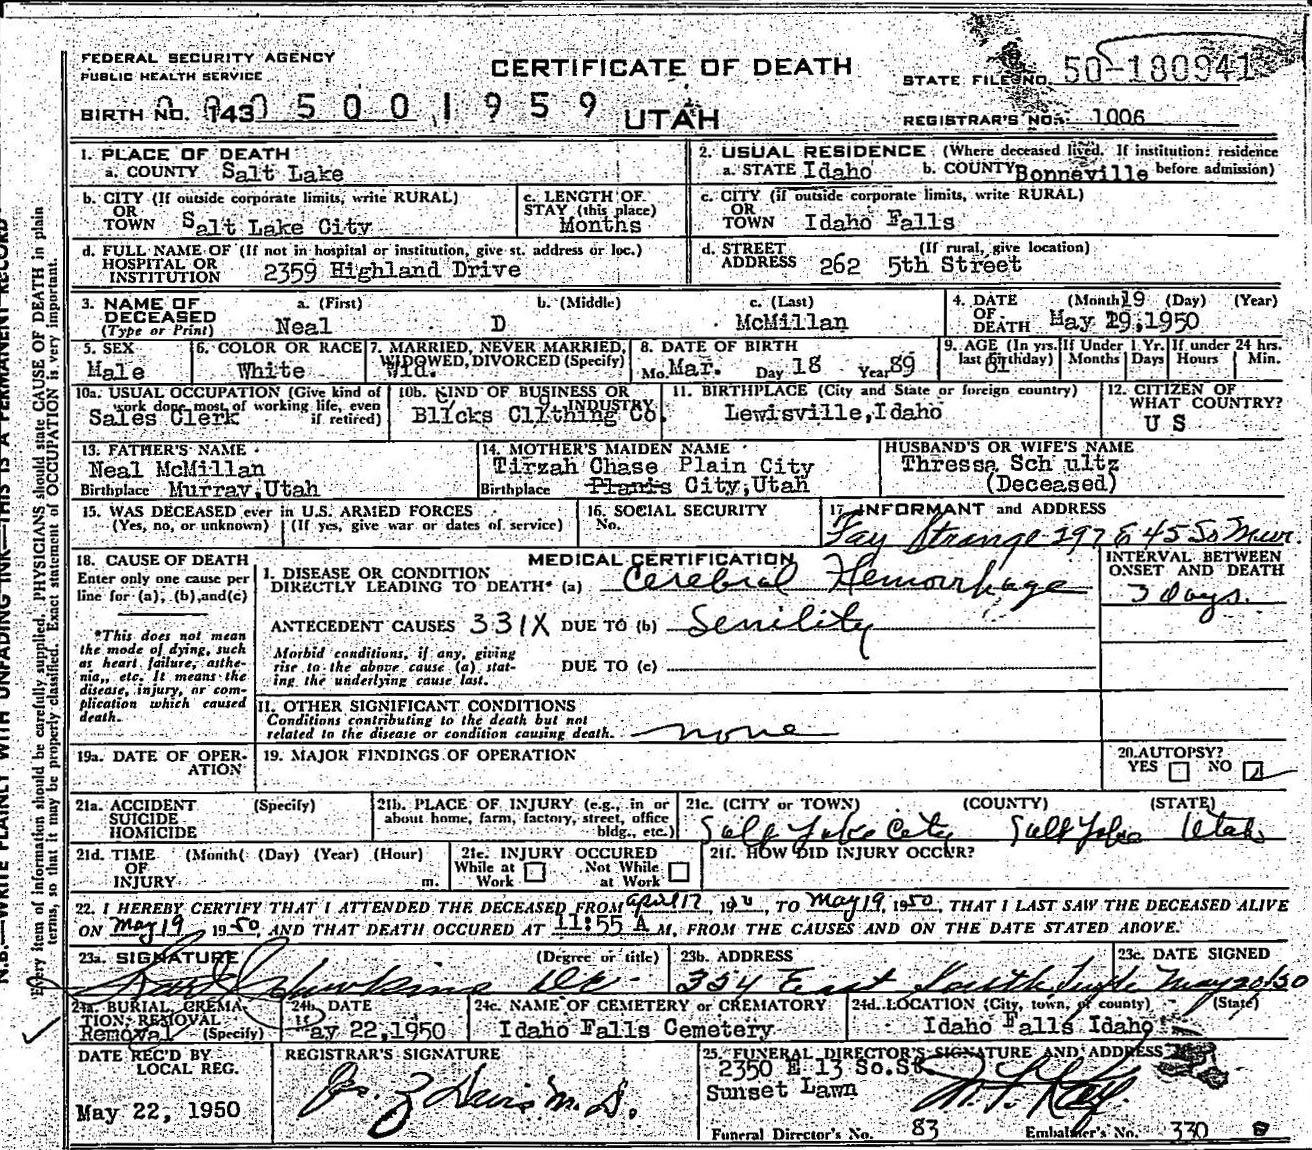 FEDERAL SECURITY AGENCY
PUBLIC HEALTH SERVICE
CERTIFICATE OF DEATH
STATE FILE NO. 50-180941
BIRTH NO. 143 5 0 0 1 9 5 9
UTAH
REGISTRAR'S NO. 1006
1. PLACE OF DEATH
a. COUNTY Salt Lake
2. USUAL RESIDENCE (Where deceased lived. If institution: residence
a. STATE Idaho b. COUNTY Bonneville before admission)
b. CITY (If outside corporate limits, write RURAL)
OR
TOWN Salt Lake City
c. LENGTH OF
STAY (this place)
Months
c. CITY (if outside corporate limits, write RURAL)
OR
TOWN Idaho Falls
d. FULL NAME OF (If not in hospital or institution, give st. address or loc.)
HOSPITAL OR
INSTITUTION 2359 Highland Drive
d. STREET (If rural, give location)
ADDRESS 262 5th Street
3. NAME OF DECEASED (Type or Print)
a. (First) b. (Middle) c. (Last)
Neal D McMillan
4. DATE OF DEATH (Month) 19 (Day) (Year)
May 29,1950
5. SEX
Male
6. COLOR OR RACE
White
7. MARRIED, NEVER MARRIED,
WIDOWED, DIVORCED (Specify)
Wid.
8. DATE OF BIRTH
Mo. Mar. Day 18 Year 89
9. AGE (In yrs. last birthday) 61
If Under 1 Yr. Months Days
If under 24 hrs. Hours Min.
10a. USUAL OCCUPATION (Give kind of
work done most of working life, even
if retired)
Sales Clerk
10b. KIND OF BUSINESS OR
INDUSTRY
Blicks Clithing Co.
11. BIRTHPLACE (City and State or foreign country)
Lewisville,Idaho
12. CITIZEN OF
WHAT COUNTRY?
U S
13. FATHER'S NAME
Neal McMillan
Birthplace Murray,Utah
14. MOTHER'S MAIDEN NAME
Tirzah Chase Plain City
Birthplace Planis City,Utah
HUSBAND'S OR WIFE'S NAME
Thressa Sch ultz
(Deceased)
15. WAS DECEASED ever in U.S. ARMED FORCES
(Yes, no, or unknown) (If yes, give war or dates of service)
16. SOCIAL SECURITY
No.
17. INFORMANT and ADDRESS
Fay Strange 297 E 45 So Mur.
18. CAUSE OF DEATH
Enter only one cause per
line for (a), (b), and (c)
*This does not mean
the mode of dying, such
as heart failure, asthe-
nia, etc. It means the
disease, injury, or com-
plication which caused
death.
MEDICAL CERTIFICATION
I. DISEASE OR CONDITION
DIRECTLY LEADING TO DEATH* (a) Cerebral Hemorrhage
ANTECEDENT CAUSES 331X DUE TO (b) Senility
Morbid conditions, if any, giving
rise to the above cause (a) stat-
ing the underlying cause last.
DUE TO (c)
II. OTHER SIGNIFICANT CONDITIONS
Conditions contributing to the death but not
related to the disease or condition causing death. none
INTERVAL BETWEEN
ONSET AND DEATH
3 days.
19a. DATE OF OPER-
ATION
19. MAJOR FINDINGS OF OPERATION
20. AUTOPSY?
YES NO
21a. ACCIDENT (Specify)
SUICIDE
HOMICIDE
21b. PLACE OF INJURY (e.g., in or
about home, farm, factory, street, office
bldg., etc.)
21c. (CITY or TOWN) (COUNTY) (STATE)
Salt Lake City Salt Lake Utah
21d. TIME (Month) (Day) (Year) (Hour)
OF
INJURY m.
21e. INJURY OCCURED
While at Work Not While at Work
21f. HOW DID INJURY OCCUR?
22. I HEREBY CERTIFY THAT I ATTENDED THE DECEASED FROM April 17, 1950, TO May 19, 1950, THAT I LAST SAW THE DECEASED ALIVE
ON May 19 1950, AND THAT DEATH OCCURED AT 11:55 A M., FROM THE CAUSES AND ON THE DATE STATED ABOVE.
23a. SIGNATURE (Degree or title)
23b. ADDRESS
354 East South Temple
23c. DATE SIGNED
May 20/50
24a. BURIAL, CREMA-
TION, REMOVAL
Removal (Specify)
24b. DATE
May 22,1950
24c. NAME OF CEMETERY or CREMATORY
Idaho Falls Cemetery
24d. LOCATION (City, town, or county) (State)
Idaho Falls Idaho
DATE REC'D BY
LOCAL REG.
May 22, 1950
REGISTRAR'S SIGNATURE
25. FUNERAL DIRECTOR'S SIGNATURE AND ADDRESS
2350 E 13 So.St.
Sunset Lawn
Funeral Director's No. 83 Embalmer's No. 330
N.B.—WRITE PLAINLY WITH UNFADING INK—THIS IS A PERMANENT RECORD
Every item of information should be carefully supplied. PHYSICIANS should state CAUSE OF DEATH in plain
terms, so that it may be properly classified. Exact statement of OCCUPATION is very important.